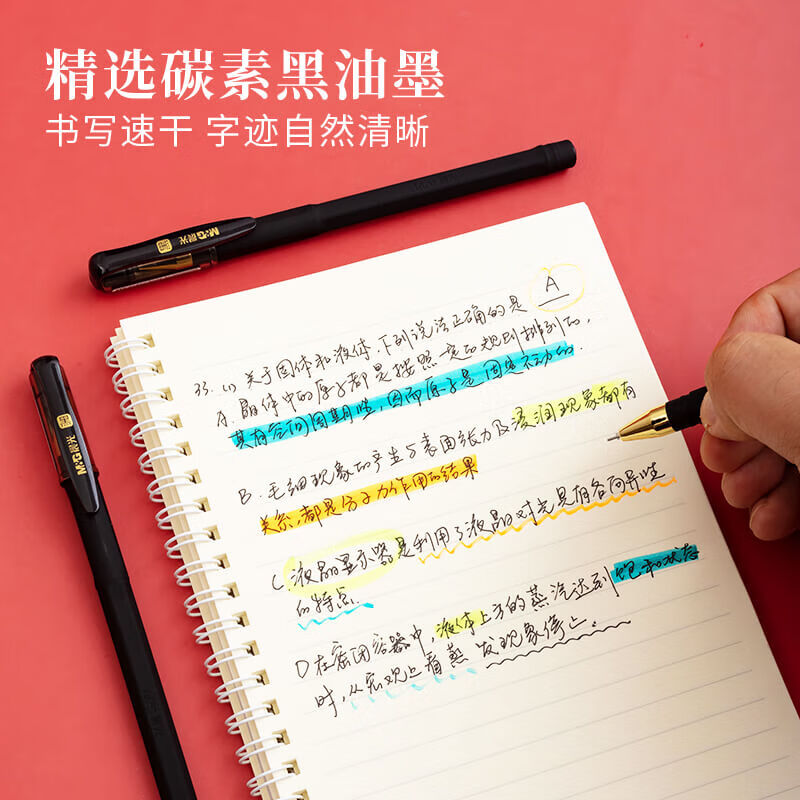 精选碳素黑油墨
书写速干 字迹自然清晰
M&G晨光
M&G晨光
A
33. (1) 关于固体和液体，下列说法正确的是
A. 晶体中的原子都是按照一定的规则排列的，
其有空间周期性，因而原子是固定不动的.
B. 毛细现象的产生与表面张力及浸润现象都有
关系，都是分子力作用的结果
C. 液晶显示器是利用了液晶对光具有各向异性
的特点.
D 在密闭容器中，液体上方的蒸汽达到饱和状态
时，从宏观上看蒸发现象停止.